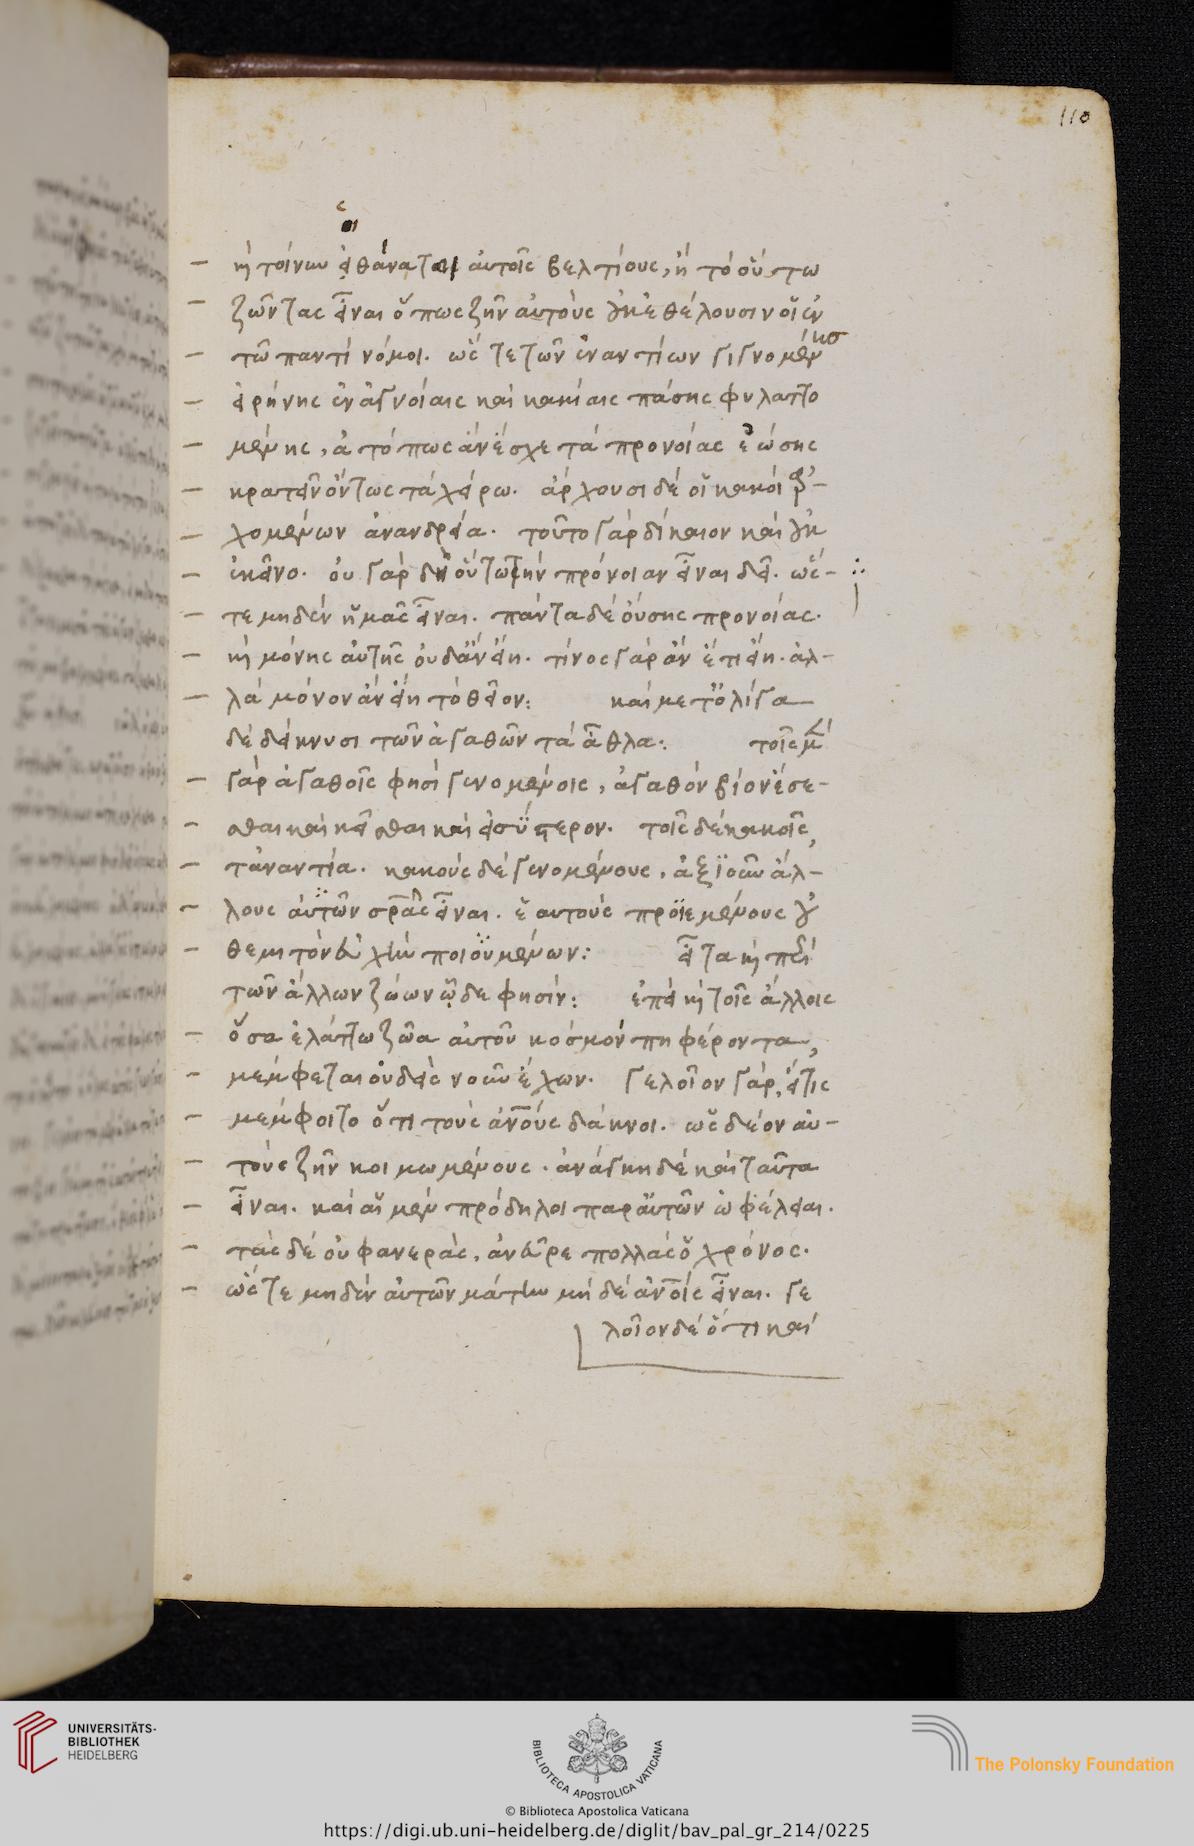 110
ἢ τοίνυν ὁ θάνατος αὐτοῖς βελτίους, ἢ τὸ οὕτω
ζῶντας εἶναι ὅπως ζῆν αὐτοὺς οὐκ ἐθέλουσιν οἱ ἐν
τῶ παντὶ νόμοι. ὥστε τῶν ἐναντίων γιγνομένων
εἰρήνης ἐν ἀγνοίαις καὶ κακίαις πάσης φυλαττο
μένης, ἀτόπως ἂν ἔσχε τὰ προνοίας ἐώσης
κρατεῖν ὄντως τὰ χείρω. ἄρχουσι δὲ οἱ κακοὶ ἀρ-
χομένων ἀνανδρεία. τοῦτο γὰρ δίκαιον καὶ οὐκ
ἐκεῖνο. οὐ γὰρ δὴ οὕτω τὴν πρόνοιαν εἶναι δεῖ. ὥσ-
τε μηδὲν ἡμᾶς εἶναι. πάντα δὲ οὔσης προνοίας.
καὶ μόνης αὐτῆς οὐδ' ἂν εἴη. τίνος γὰρ ἂν ἔτι εἴη. ἀλ-
λὰ μόνον ἂν εἴη τὸ θεῖον: καὶ μετ' ὀλίγα
δὲ δείκνυσι τῶν ἀγαθῶν τὰ ἆθλα: τοῖς μὲν
γὰρ ἀγαθοῖς φησὶ γενομένοις, ἀγαθὸν βίον ἔσε-
σθαι καὶ κεῖσθαι καὶ εἰσύστερον. τοῖς δὲ κακοῖς,
τἀναντία. κακοὺς δὲ γενομένους, ἀξιοῦν ἄλ-
λους αὐτῶν σωτῆρας εἶναι. ἑαυτοὺς προϊεμένους οὐ
θεμιτὸν εὐχὴν ποιουμένων: εἶτα καὶ περὶ
τῶν ἄλλων ζώων ὧδε φησίν: ἐπεὶ καὶ τοῖς ἄλλοις
ὅσα ἐλάττω ζῶα αὐτοῦ κόσμον τῆ φέροντα,
μέμφεται οὐδεὶς νοῦν ἔχων. γελοῖον γάρ, εἴ τις
μέμφοιτο ὅτι τοὺς ἀνθρώπους δάκνοι. ὡς δέον αὐ-
τοὺς ζῆν κοιμωμένους. ἀνάγκη δὲ καὶ ταῦτα
εἶναι. καὶ αἱ μὲν πρόδηλοι παρ' αὐτῶν ὠφέλειαι.
τὰς δὲ οὐ φανεράς, ἀνεῦρε πολλὰς ὁ χρόνος.
ὥστε μηδὲν αὐτῶν μάτην μηδὲ ἀνθρώποις εἶναι. γε
λοῖον δὲ ὅτι καὶ
UNIVERSITÄTS-
BIBLIOTHEK
HEIDELBERG
BIBLIOTECA APOSTOLICA VATICANA
The Polonsky Foundation
© Biblioteca Apostolica Vaticana
https://digi.ub.uni-heidelberg.de/diglit/bav_pal_gr_214/0225